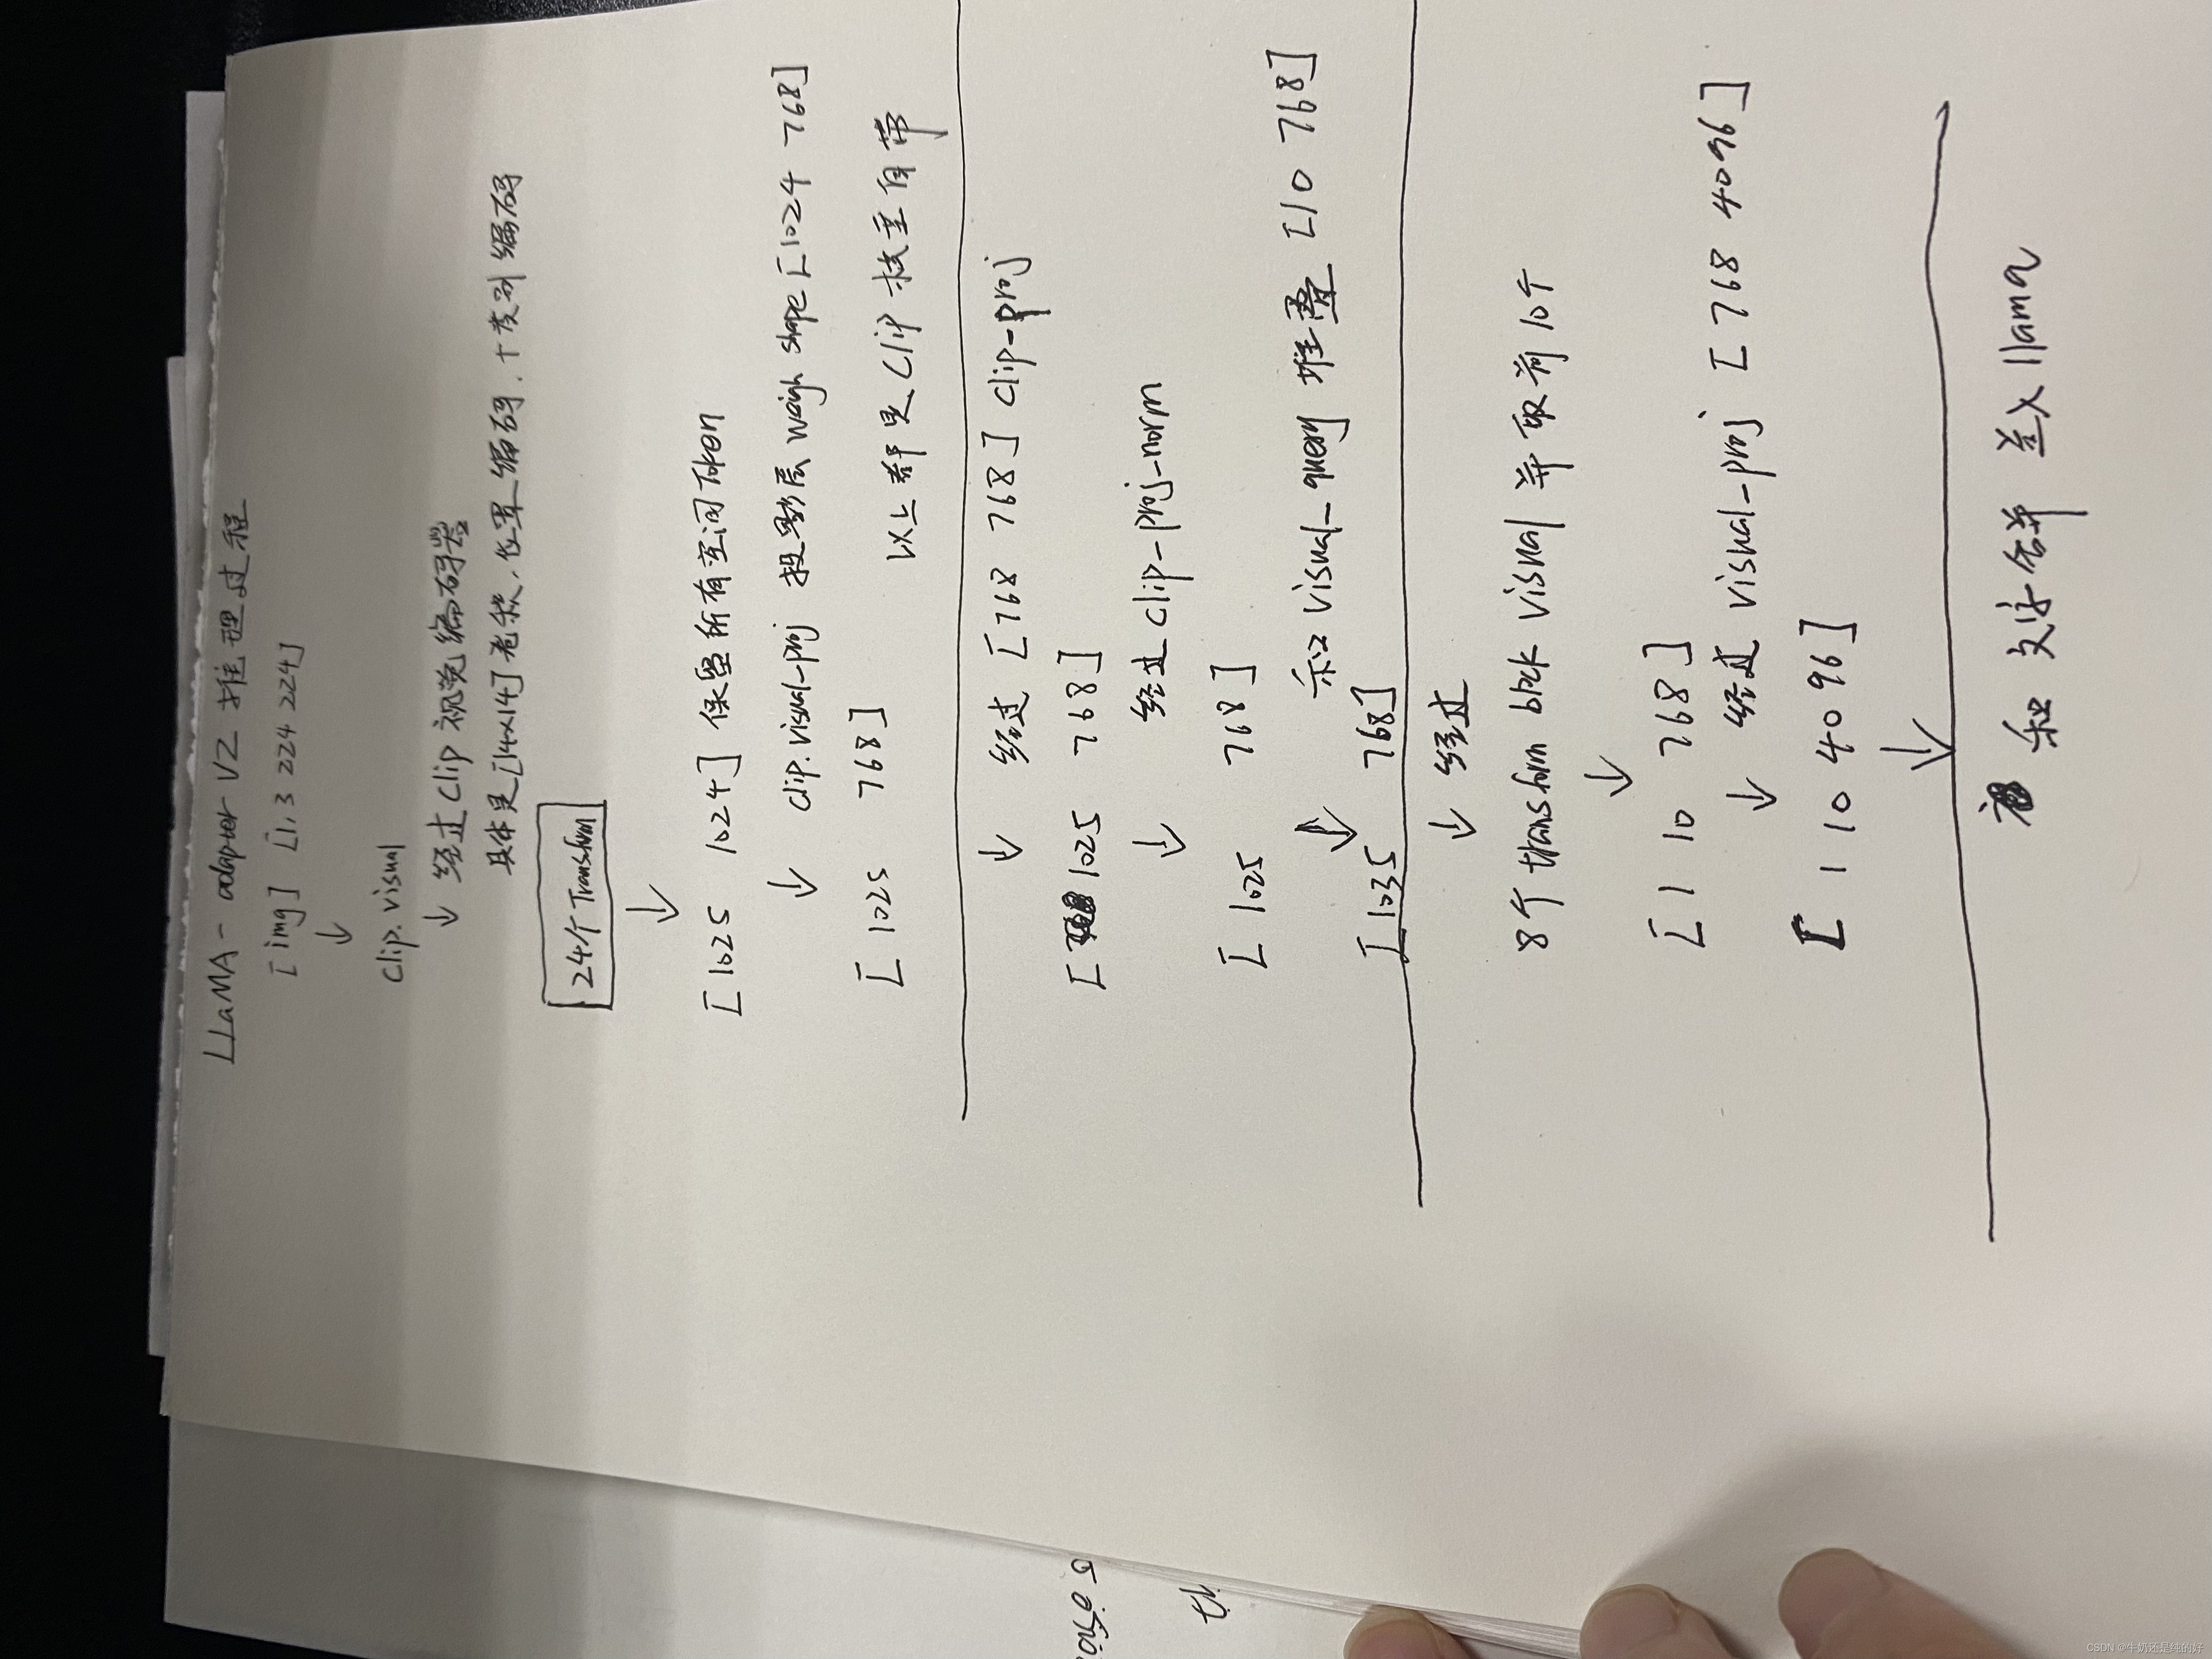 LLaMA-adapter V2 推理过程
[img] [1,3 224 224]
↓
clip.visual
↓ 经过Clip 视觉编码器
具体是[14x14]卷积,位置编码,十类别编码
24个Transform
↓
[1025 1024] 保留所有空间Token
↓ clip.visual-proj 投影层 weigh shape [1024 768]
[1025 768]
以上都是Clip 权重自带
↓ 经过 [768 768] clip-proj
[1025 768]
↓ 经过 clip-proj-norm
[1025 768]
↓ 和 visual_query 堆叠 [10 768]
[1035 768]
↓ 经过
8个 transform blck visual 并取前10个
↓
[1 10 768]
↓ 经过 visual-proj [768 4096]
[1 10 4096]
↓
和文字合并 送入 llama
CSDN @牛奶还是纯的好